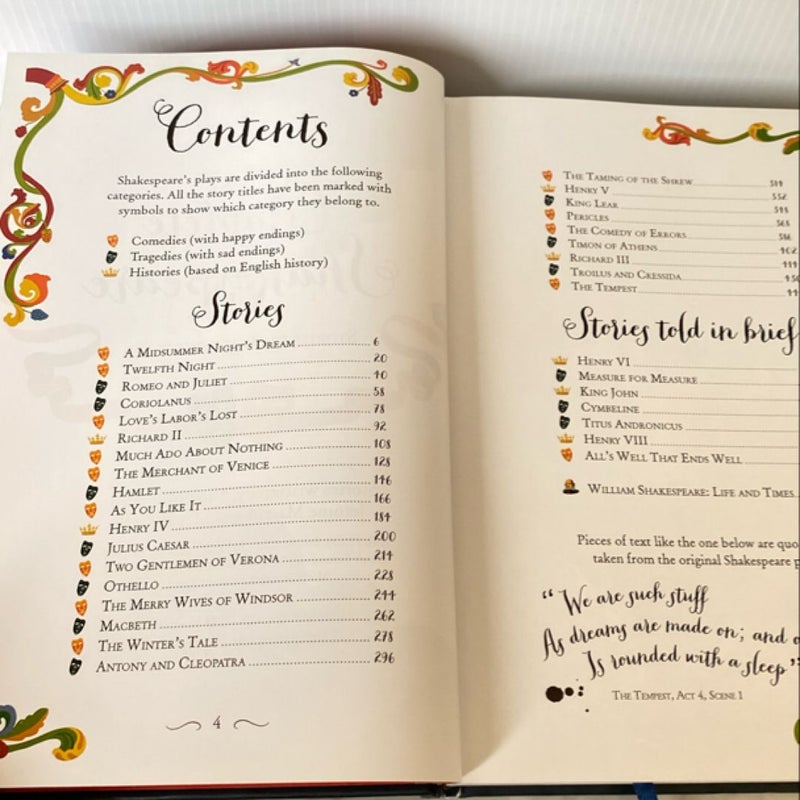 Contents
Shakespeare's plays are divided into the following
categories. All the story titles have been marked with
symbols to show which category they belong to.
Comedies (with happy endings)
Tragedies (with sad endings)
Histories (based on English history)
Stories
A Midsummer Night's Dream 6
Twelfth Night 20
Romeo and Juliet 40
Coriolanus 58
Love's Labor's Lost 78
Richard II 92
Much Ado About Nothing 108
The Merchant of Venice 128
Hamlet 146
As You Like It 166
Henry IV 184
Julius Caesar 200
Two Gentlemen of Verona 214
Othello 228
The Merry Wives of Windsor 244
Macbeth 262
The Winter's Tale 278
Antony and Cleopatra 296
4
The Taming of the Shrew
Henry V
King Lear
Pericles
The Comedy of Errors
Timon of Athens
Richard III
Troilus and Cressida
The Tempest
Stories told in brief
Henry VI
Measure for Measure
King John
Cymbeline
Titus Andronicus
Henry VIII
All's Well That Ends Well
William Shakespeare: Life and Times
Pieces of text like the one below are quo
taken from the original Shakespeare p
"We are such stuff
As dreams are made on; and o
Is rounded with a sleep"
The Tempest, Act 4, Scene 1